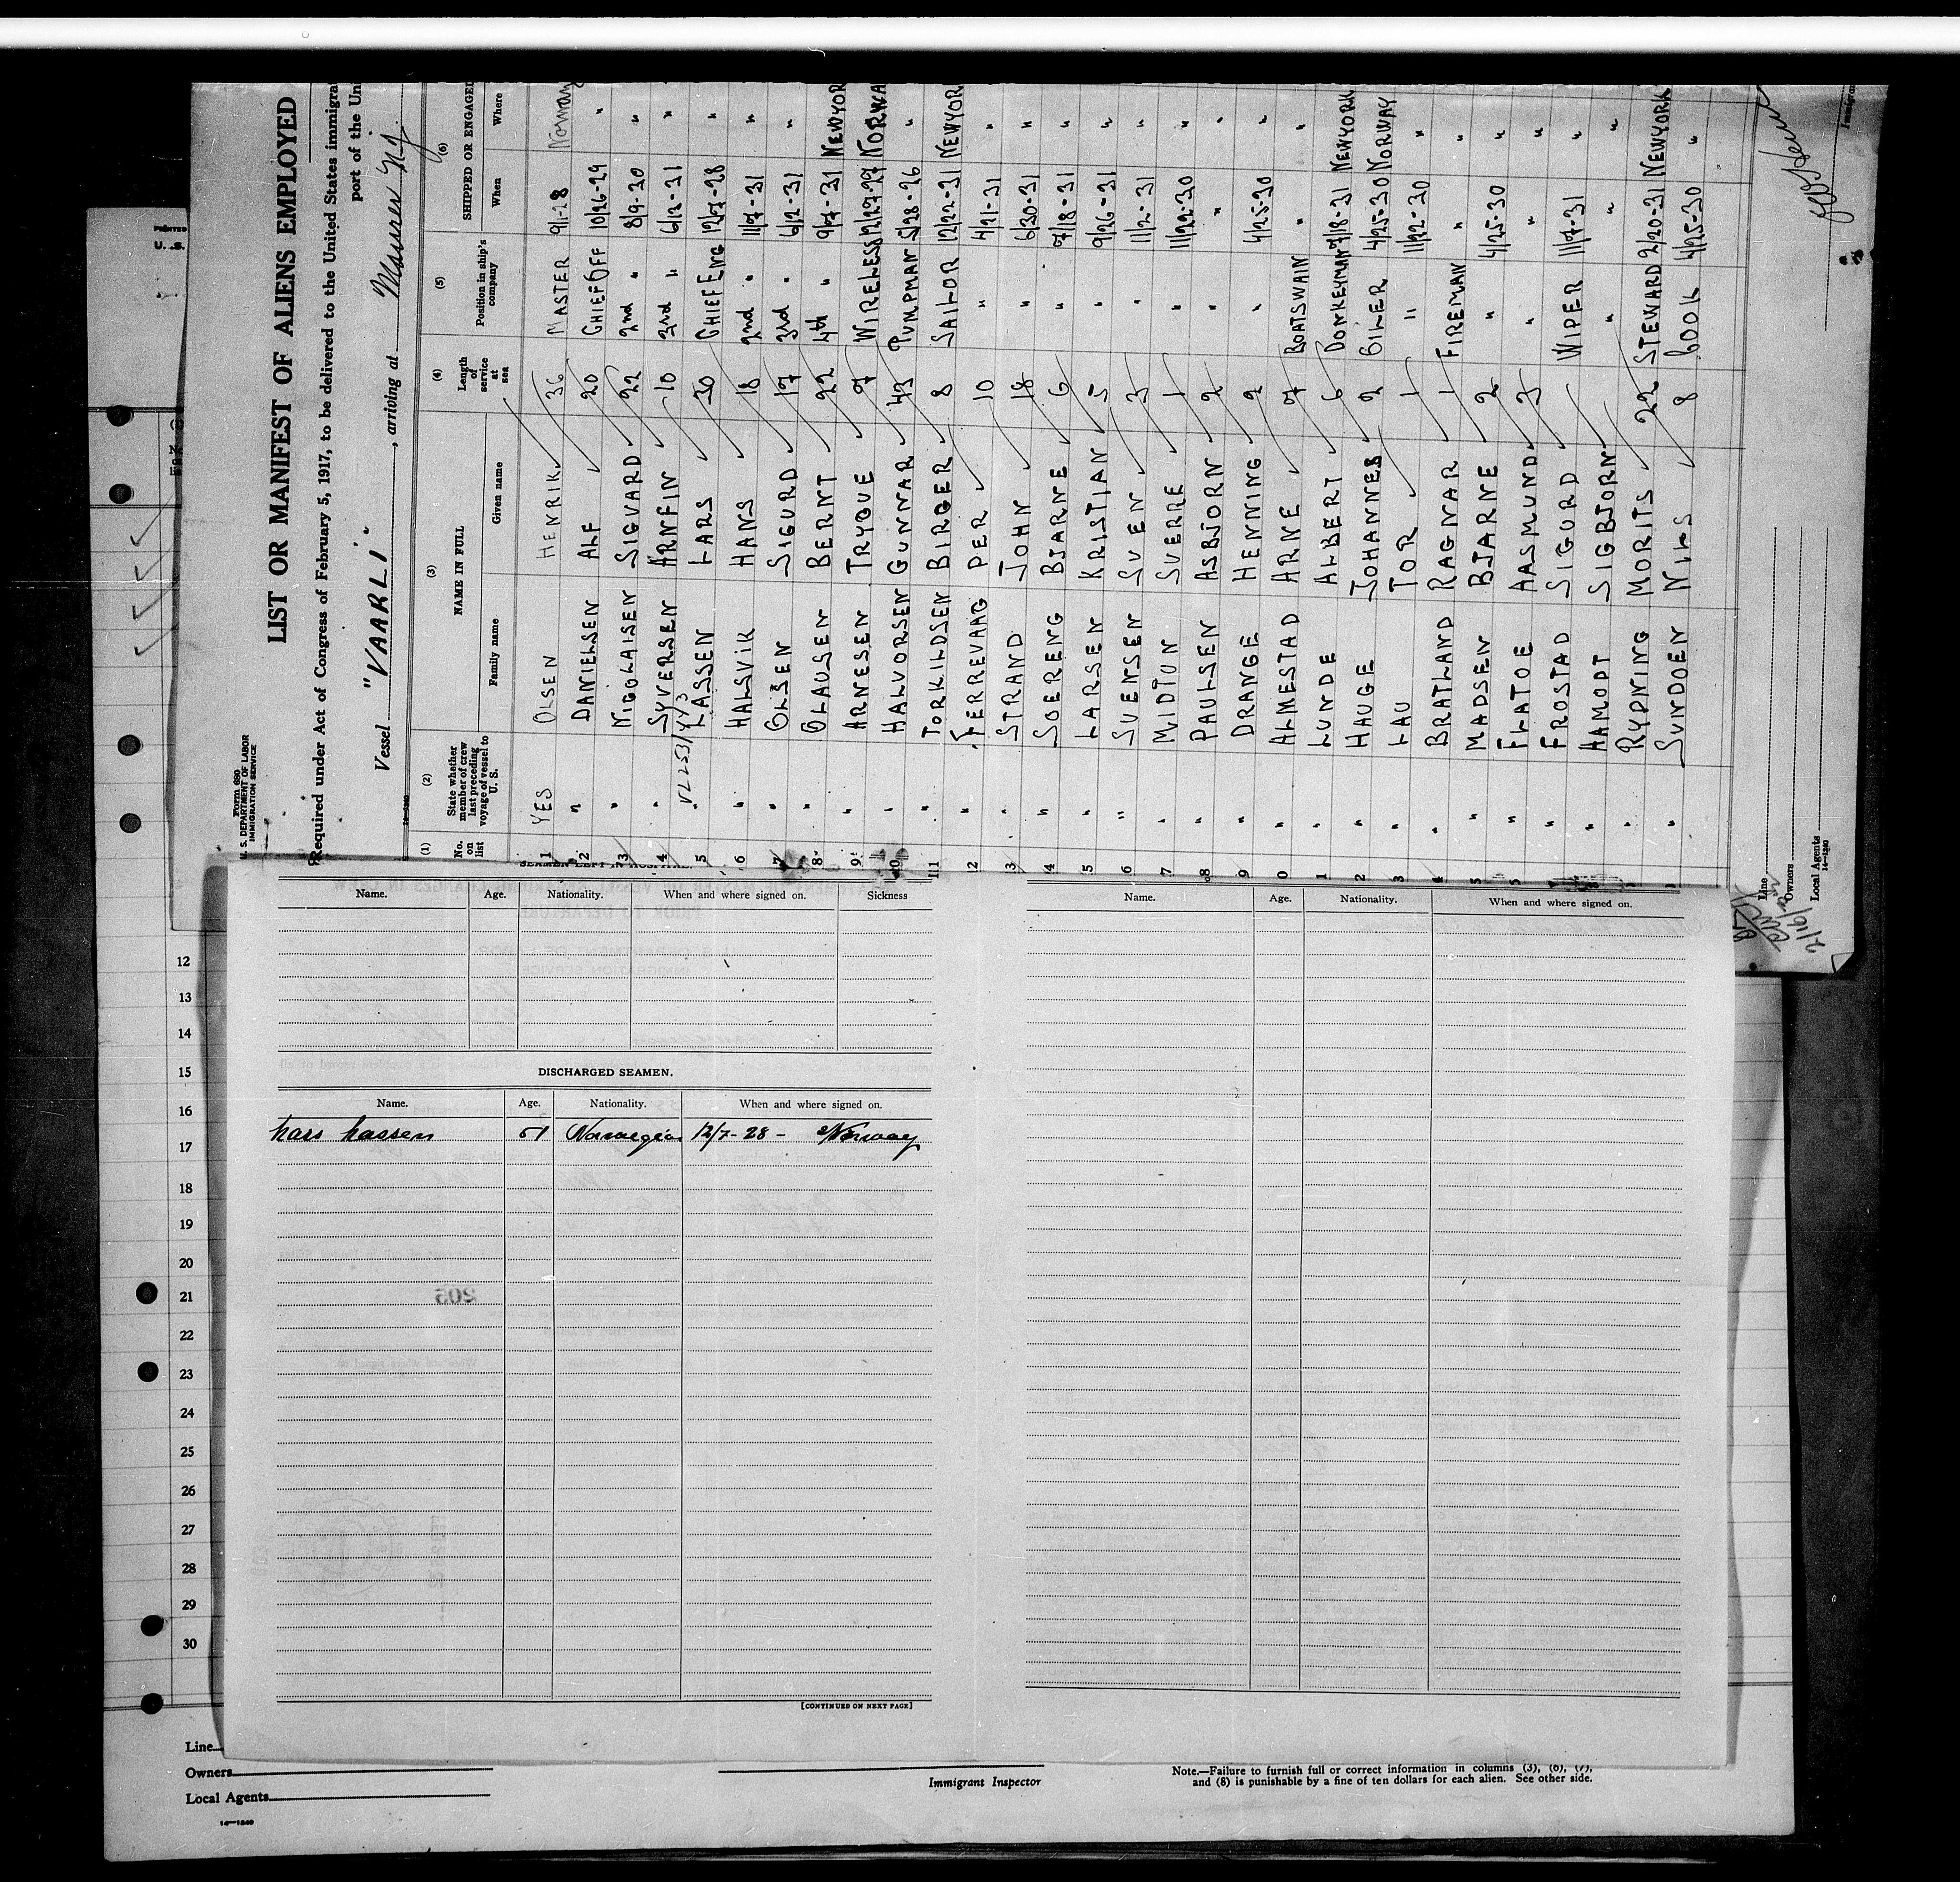 Form 680
U. S. DEPARTMENT OF LABOR
IMMIGRATION SERVICE
LIST OR MANIFEST OF ALIENS EMPLOYED
Required under Act of Congress of February 5, 1917, to be delivered to the United States immigra
port of the Un
Vessel "VAARLI", arriving at Maurer N.J.
(1) (2) (3) (4) (5) (6)
No. on list
State whether member of crew last preceding voyage of vessel to U. S.
NAME IN FULL
Family name Given name
Length of service at sea
Position in ship's company
SHIPPED OR ENGAGED
When Where
1 YES OLSEN HENRIK 36 MASTER 9/1-28 Norway
2 " DANIELSEN ALF 20 CHIEF OFF 10/26-29 "
3 " NICOLAISEN SIGVARD 22 2nd " 8/9-30 "
4 " SYVERSEN ARNFIN 10 3rd " 6/2-31 "
5 " LASSEN LARS 30 CHIEF ENG 12/7-28 "
6 " HALSVIK HANS 18 2nd " 11/7-31 "
7 " OLSEN SIGURD 17 3rd " 6/2-31 "
8 " OLAUSEN BERNT 22 4th " 9/7-31 NEWYOR
9 " ARNESEN TRYGVE 7 WIRELESS 12/27-27 NORWA
10 " HALVORSEN GUNNAR 43 PUMPMAN 5/28-26 "
11 " TORKILDSEN BIRGER 8 SAILOR 12/22-31 NEWYOR
12 " FERREVAAG PER 10 " 4/21-31 "
13 " STRAND JOHN 18 " 6/30-31 "
4 " SOERENG BJARNE 6 " 7/18-31 "
5 " LARSEN KRISTIAN 5 " 9/26-31 "
6 " SVENSEN SVEN 3 " 11/2-31 "
7 " MIDTUN SVERRE 1 " 11/22-30 "
8 " PAULSEN ASBJORN 2 " " "
9 " DRANGE HENNING 2 " 4/25-30 "
0 " ALMESTAD ARNE 7 BOATSWAIN " "
1 " LUNDE ALBERT 6 DONKEYMAN 7/18-31 NEWYORK
2 " HAUGE JOHANNES 2 OILER 4/25-30 NORWAY
3 " LAU TOR 1 " 11/22-30 "
" BRATLAND RAGNAR 1 FIREMAN " "
" MADSEN BJARNE 2 " 4/25-30 "
" FLATOE AASMUND 3 " " "
" FROSTAD SIGURD WIPER 11/7-31 "
" HAMODT SIGBJORN " " "
" RYDNING MORITS 22 STEWARD 2/20-31 NEWYORK
" SUNDOEN NILS 8 COOK 4/25-30 "
Line
Owners
Local Agents
14—1240
Name. Age. Nationality. When and where signed on. Sickness
DISCHARGED SEAMEN.
Name. Age. Nationality. When and where signed on.
Lars Lassen 51 Norwegian 12/7-28 - Norway
[CONTINUED ON NEXT PAGE]
Name. Age. Nationality. When and where signed on.
12
13
14
15
16
17
18
19
20
21
22
23
24
25
26
27
28
29
30
Line
Owners
Local Agents
14—1240
Immigrant Inspector
Note.—Failure to furnish full or correct information in columns (3), (6), (7),
and (8) is punishable by a fine of ten dollars for each alien. See other side.